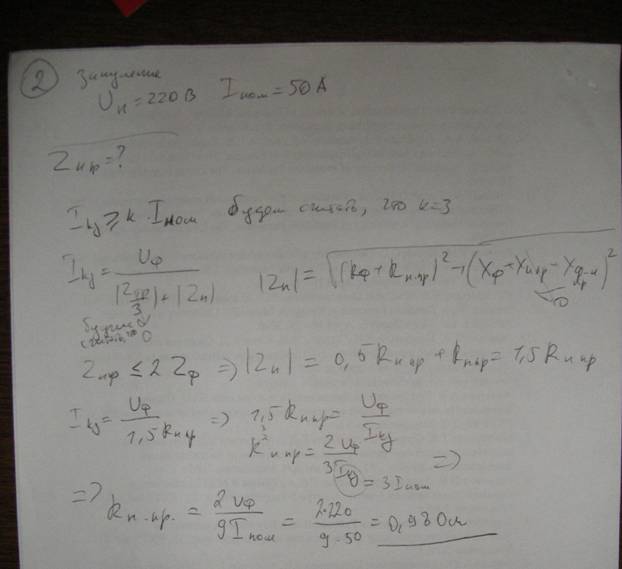 2 Зануление
Uн = 220 В Iном = 50 А
Zнпр = ?
Iкз ≥ k · Iном будем считать, что k = 3
Iкз = Uф / (|Zтр/3| + |Zп|) |Zп| = √((Rф + Rн.пр)² + (Xф + Xнпр + X)²)
будем считать 0
Zнпр ≤ 2 Zф => |Zп| = 0,5 Rнпр + Rнпр = 1,5 Rнпр
Iкз = Uф / 1,5 Rнпр => 1,5 Rнпр = Uф / Iкз
Rнпр = 2 Uф / 3 Iкз = 3 Iном =>
=> Rн.пр. = 2 Uф / 9 Iном = 2·220 / 9·50 = 0,98 Ом